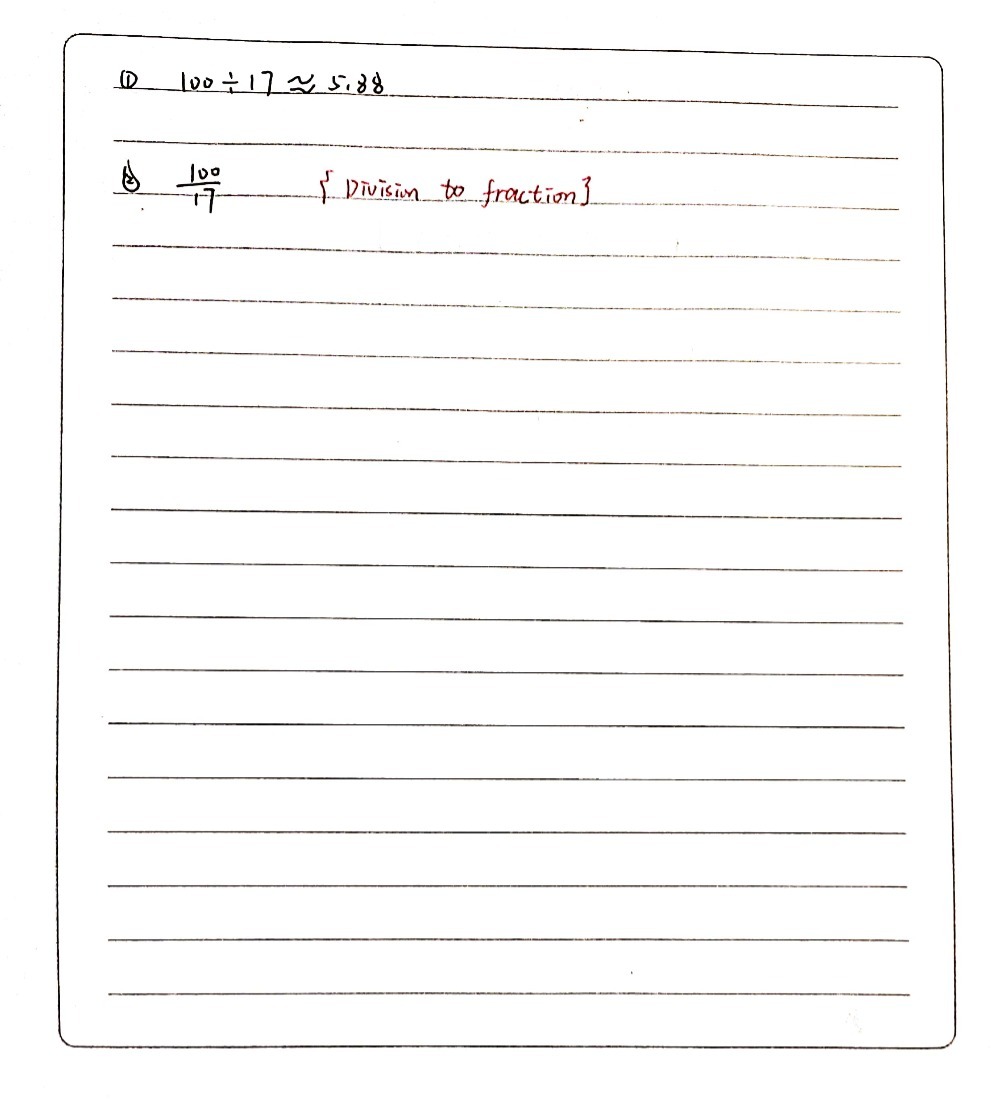 ① 100 ÷ 17 ≈ 5.88
② 100/17 { Division to fraction }